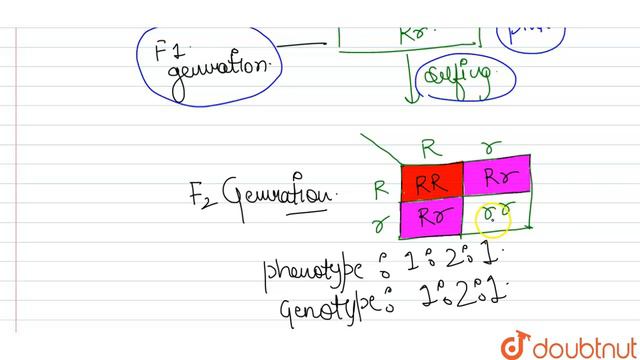 Rr.
F1.
generation.
selfing.
R r
R RR Rr
F2 Generation.
r Rr rr
phenotype : 1:2:1.
genotype : 1:2:1.
doubtnut